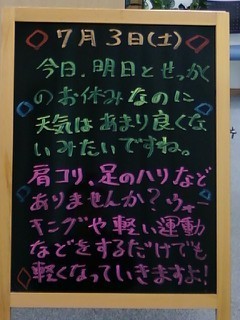 7月3日(土)
今日、明日とせっかく
のお休みなのに
天気はあまり良くな
いみたいですね。
肩コリ、足のハリなど
ありませんか?ウォー
キングや軽い運動
などをするだけでも
軽くなっていきますよ!